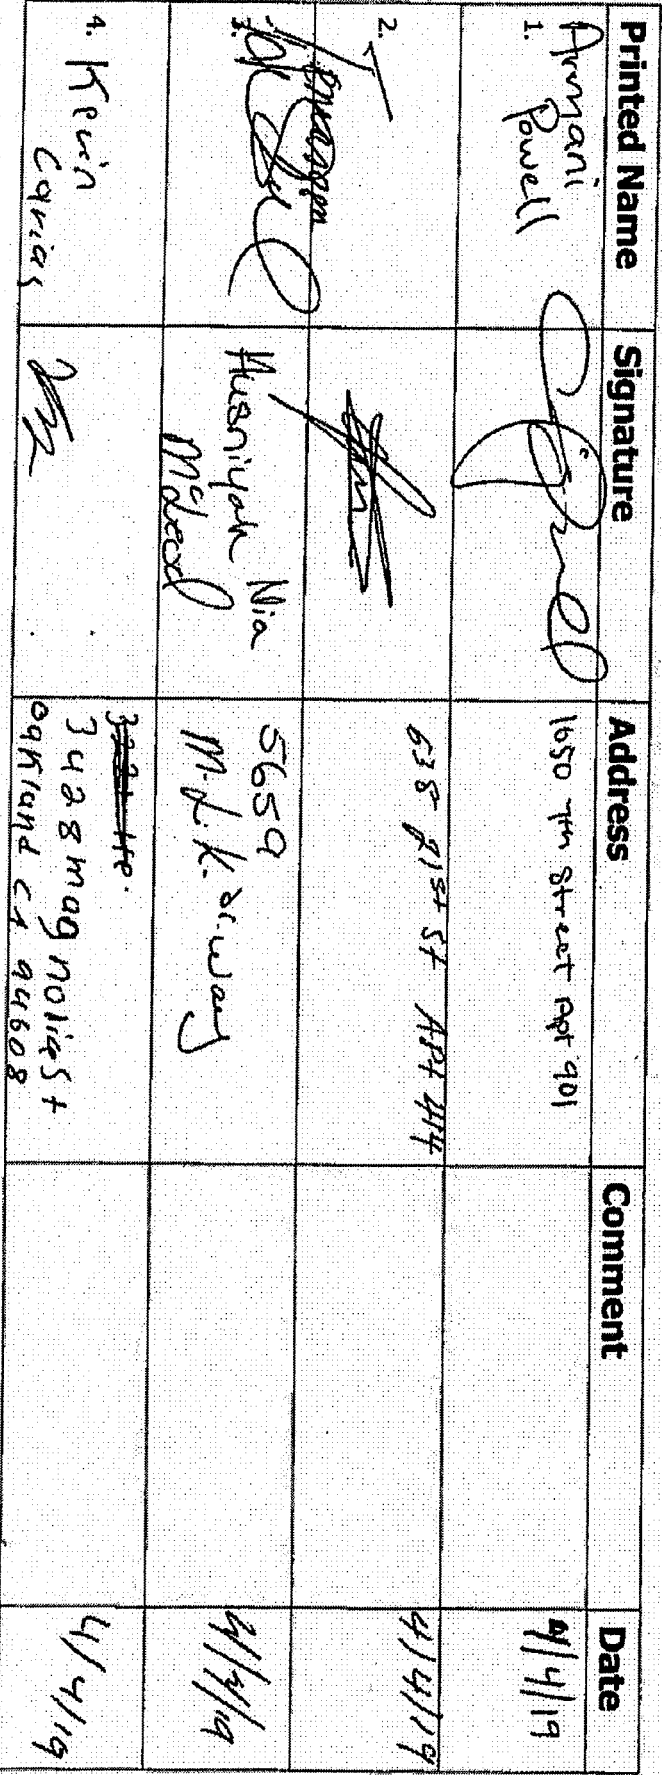 Printed Name Signature Address Comment Date
1. Armani Powell 1650 7th Street Apt 901 4/4/19
2. 638 21st St Apt 414 4/4/19
3. Husniyah Nia McLeod 5659 M.L.K. Jr. way 4/4/19
4. Kevin Carias 3428 magnolia St oakland ca 94608 4/4/19